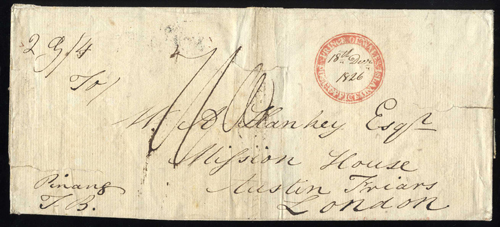 2 9/4
18th Decr
1826
To
W. A. Hankey Esqr
Mission House
Austin Friars
London
Pinang
T. B.